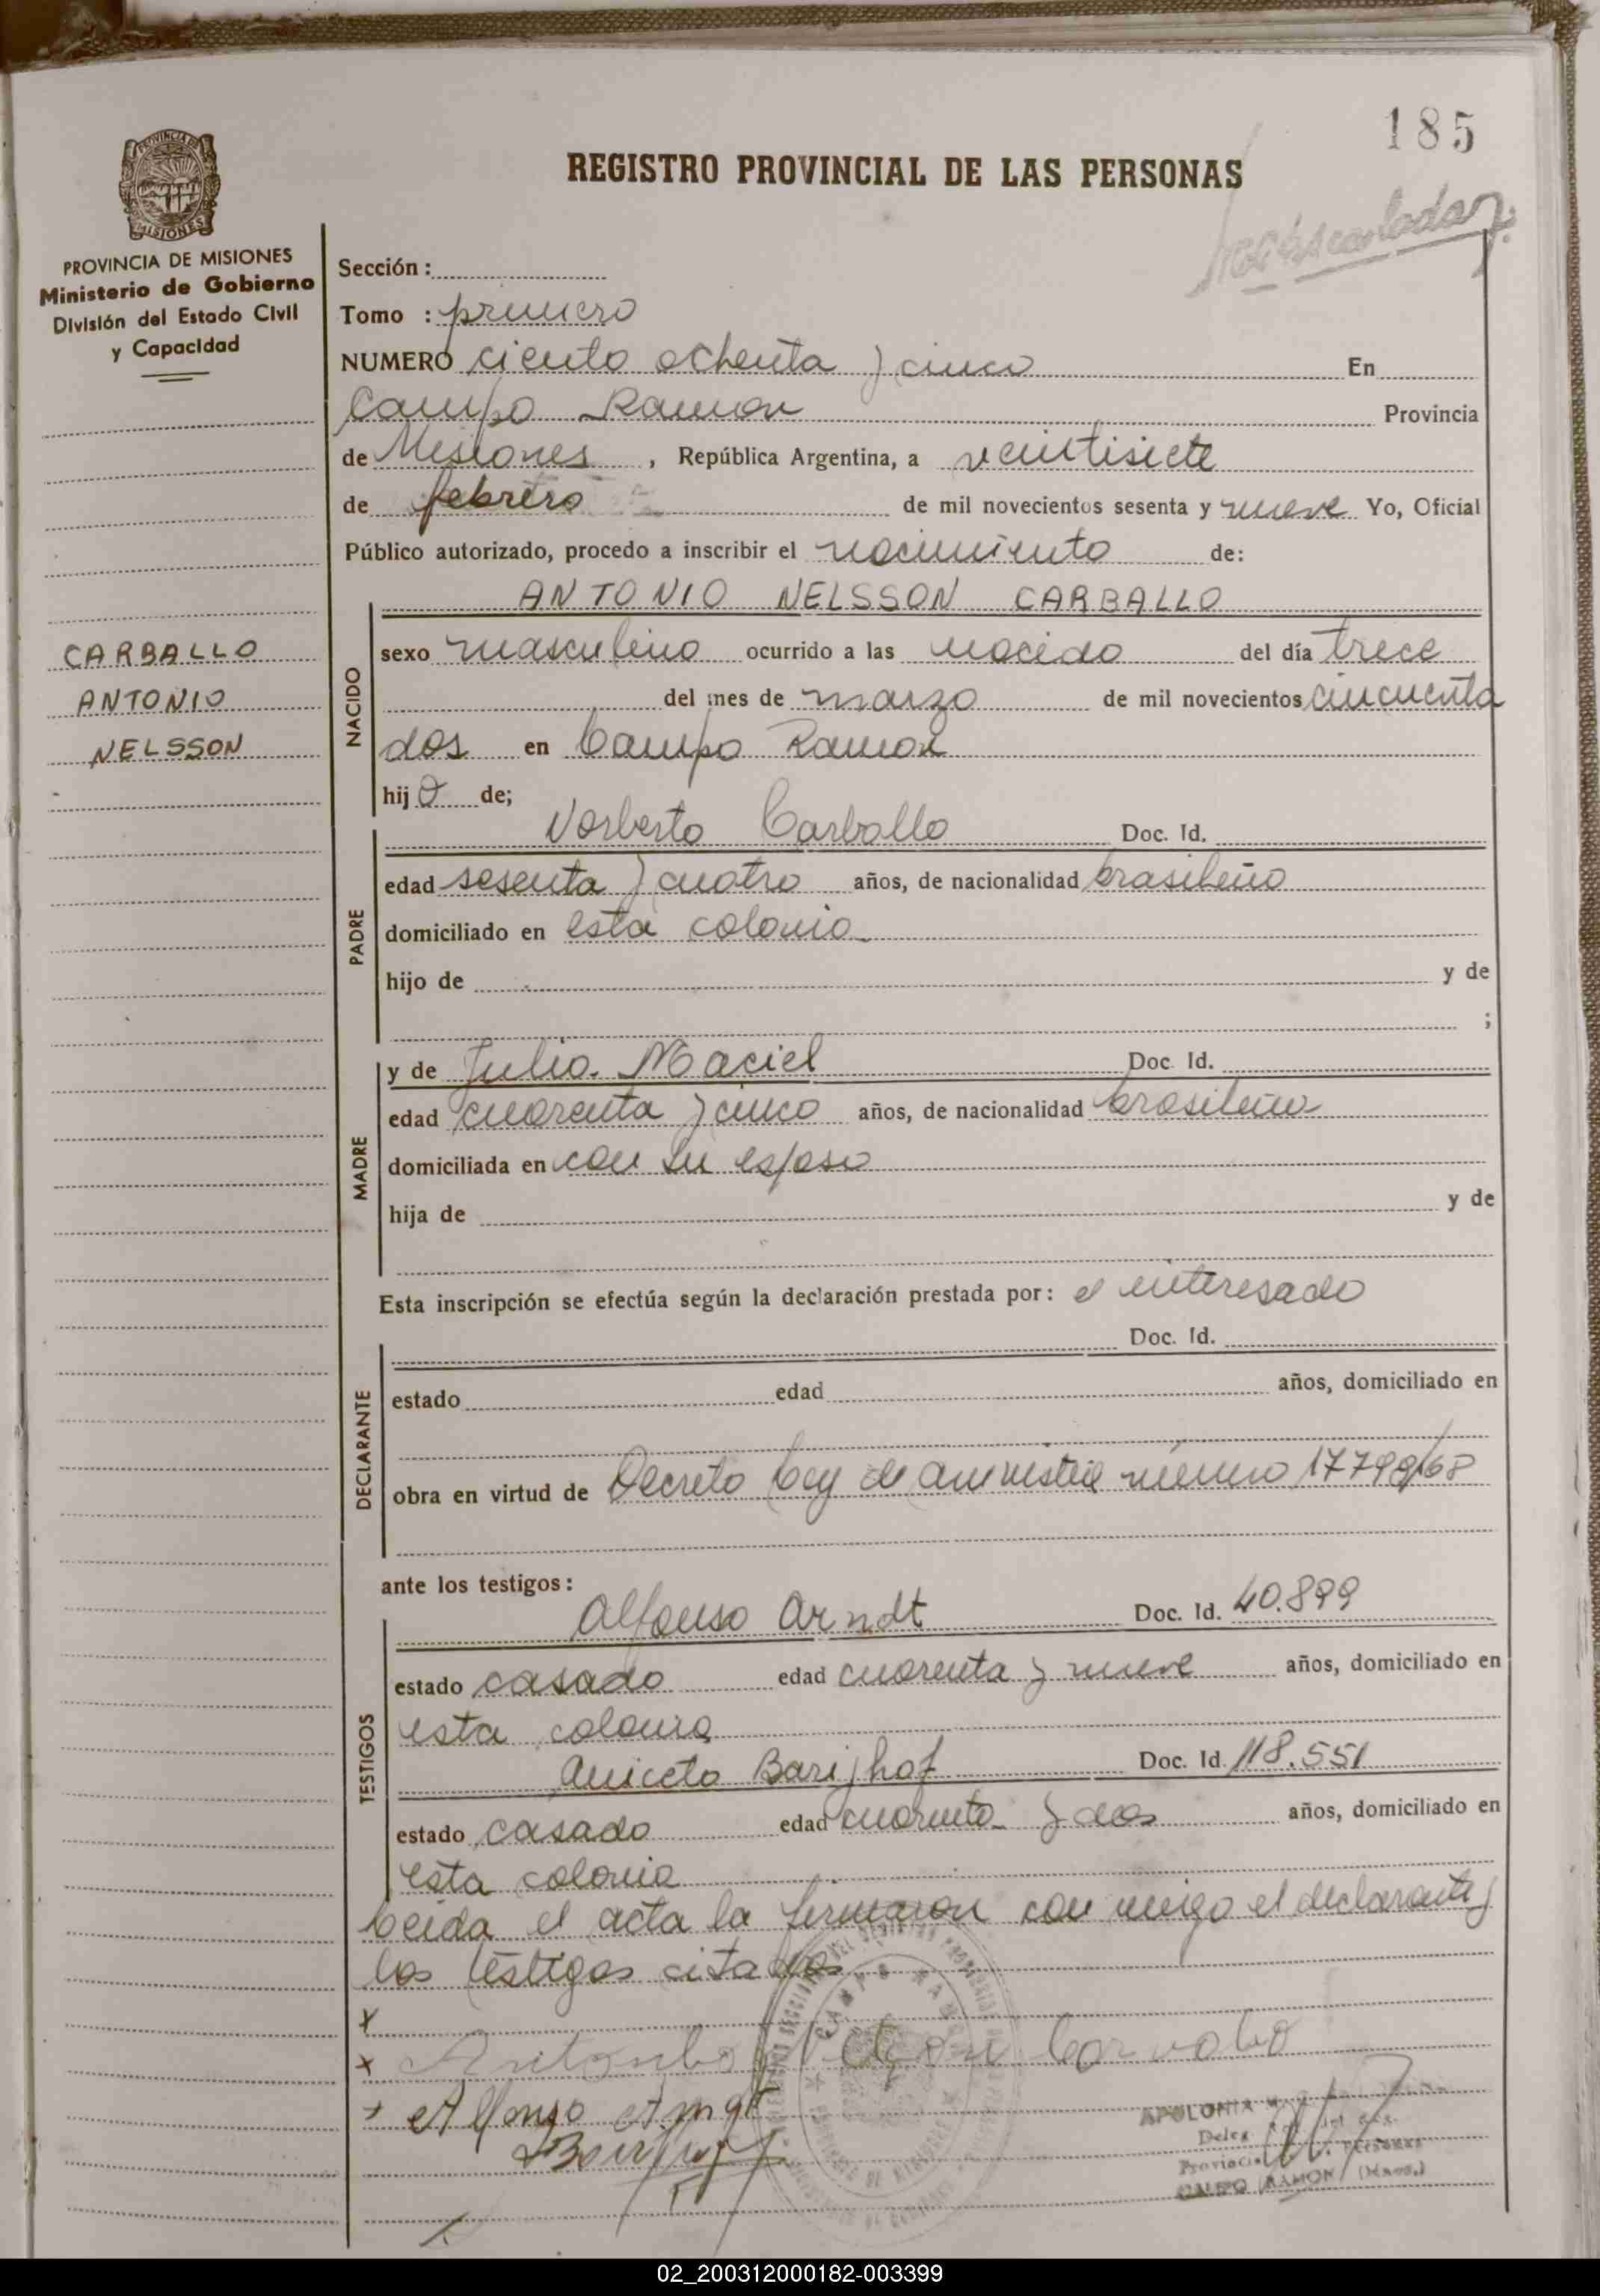 185
REGISTRO PROVINCIAL DE LAS PERSONAS
PROVINCIA DE MISIONES
Ministerio de Gobierno
División del Estado Civil
y Capacidad
Sección :
Tomo : primero
NUMERO ciento ochenta y cinco En
Campo Ramon Provincia
de Misiones , República Argentina, a veintisiete
de febrero de mil novecientos sesenta y nueve Yo, Oficial
Público autorizado, procedo a inscribir el nacimiento de:
ANTONIO NELSSON CARBALLO
CARBALLO
ANTONIO
NELSSON
NACIDO
sexo masculino ocurrido a las nacido del día trece
del mes de marzo de mil novecientos cincuenta
dos en Campo Ramon
hijo de;
PADRE
Norberto Carballo Doc. Id.
edad sesenta y cuatro años, de nacionalidad brasileño
domiciliado en esta colonia
hijo de y de
;
MADRE
y de Julia Maciel Doc. Id.
edad cuarenta y cinco años, de nacionalidad brasileña
domiciliada en con su esposo
hija de y de
Esta inscripción se efectúa según la declaración prestada por: el interesado
DECLARANTE
Doc. Id.
estado edad años, domiciliado en
obra en virtud de Decreto ley de amnistia número 17798/68
ante los testigos:
TESTIGOS
Alfonso Arndt Doc. Id. 40.899
estado casado edad cuarenta y nueve años, domiciliado en
esta colonia
Aniceto Barijhof Doc. Id. 118.551
estado casado edad cuarenta y dos años, domiciliado en
esta colonia
Leida el acta la firmaron con migo el declarante y
los testigos citados
x
x Antonho Nelson Carvalho
x Alfonso
APOLONIA
CAMPO RAMON (Mnes.)
02_200312000182-003399